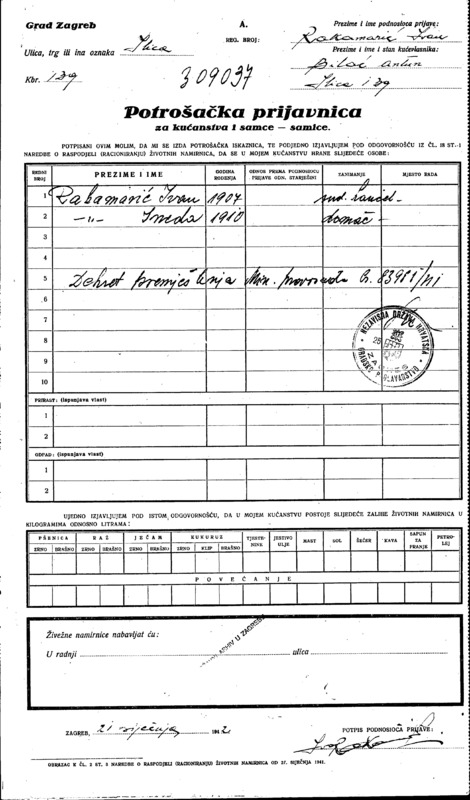 Grad Zagreb
A.
REG. BROJ:
Prezime i ime podnosioca prijave:
Rakamarić Ivan
Ulica, trg ili ina oznaka Ilica
Prezime i ime i stan kućevlasnika:
Antun
Kbr. 129
309037
Ilica 129
Potrošačka prijavnica
za kućanstva i samce — samice.
POTPISANI OVIM MOLIM, DA MI SE IZDA POTROŠAČKA ISKAZNICA, TE PODJEDNO IZJAVLJUJEM POD ODGOVORNOŠĆU IZ ČL. 18 ST. 1
NAREDBE O RASPODJELI (RACIONIRANJU) ŽIVOTNIH NAMIRNICA, DA SE U MOJEM KUĆANSTVU HRANE SLIJEDEĆE OSOBE:
REDNI BROJ PREZIME I IME GODINA ROĐENJA ODNOS PREMA PODNOSIOCU PRIJAVE ODN. STARJEŠINI ZANIMANJE MJESTO RADA
1 Rakamarić Ivan 1907
2 -„- 1910 domać.
3
4
5 Dekret premještenja Min. pravosuđa
6
7
8
9
10
NEZAVISNA DRŽAVA HRVATSKA
GRADSKO POGLAVARSTVO
PRIRAST: (ispunjava vlast)
1
2
ODPAD: (ispunjava vlast)
1
2
UJEDNO IZJAVLJUJEM POD ISTOM ODGOVORNOŠĆU, DA U MOJEM KUĆANSTVU POSTOJE SLIJEDEĆE ZALIHE ŽIVOTNIH NAMIRNICA U
KILOGRAMIMA ODNOSNO LITRAMA:
PŠENICA RAŽ JEČAM KUKURUZ TJESTENINE JESTIVO ULJE MAST SOL ŠEĆER KAVA SAPUN ZA PRANJE PETROLEJ
ZRNO BRAŠNO ZRNO BRAŠNO ZRNO BRAŠNO ZRNO KLIP BRAŠNO
POVEĆANJE
Živežne namirnice nabavljat ću:
U radnji ulica
ARHIV U ZAGREBU
ZAGREB, 21 siječnja 1942
POTPIS PODNOSIOCA PRIJAVE:
OBRAZAC K ČL. 2 ST. 2 NAREDBE O RASPODJELI (RACIONIRANJU) ŽIVOTNIH NAMIRNICA OD 27. SIJEČNJA 1941.